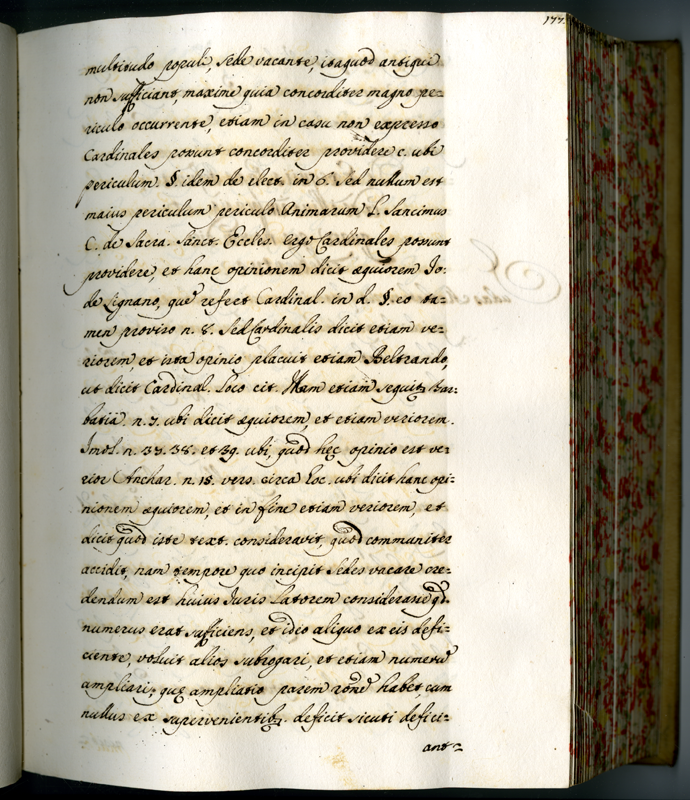 177.
multitudo populi, sede vacante, itaquod antiqui
non sufficiant, maxime quia concorditer magno pe=
riculo occurrente, etiam in casu non expresso
Cardinales possunt concorditer providere c. ubi
periculum §. idem de elect. in 6. sed nullum est
maius periculum periculo Animarum L. Sancimus
C. de Sacra. Sanct. Eccles. ergo Cardinales possunt
providere, et hanc opinionem dicit æquiorem Jo:
de Lignano, que refert Cardinal. in d. §. eo ta=
men proviso n. 8. Sed Cardinalis dicit etiam ve=
riorem, et ista opinio placuit etiam Beltrando,
ut dicit Cardinal. loco cit. etiam sequit Bar=
batia. n. 7. ubi dicit æquiorem, et etiam veriorem.
Imol. n. 37. 38. et 39. ubi, quod hec opinio est ve=
rior Anchar. n. 18. vers. circa hoc. ubi dicit hanc opi=
nionem æquiorem, et in fine etiam veriorem, et
dicit quod iste text. consideravit, quod communiter
accidit, nam tempore quo incipit sedes vacare cre=
dendum est huius Juris Latorem considerasse qd.
numerus erat sufficiens, et ideo aliquo ex eis defi=
ciente, voluit alios subrogari, et etiam numerũ
ampliari, que ampliatio parem rõne habet, cum
nullus ex supervenientibq. deficit sicuti defici=
ant=